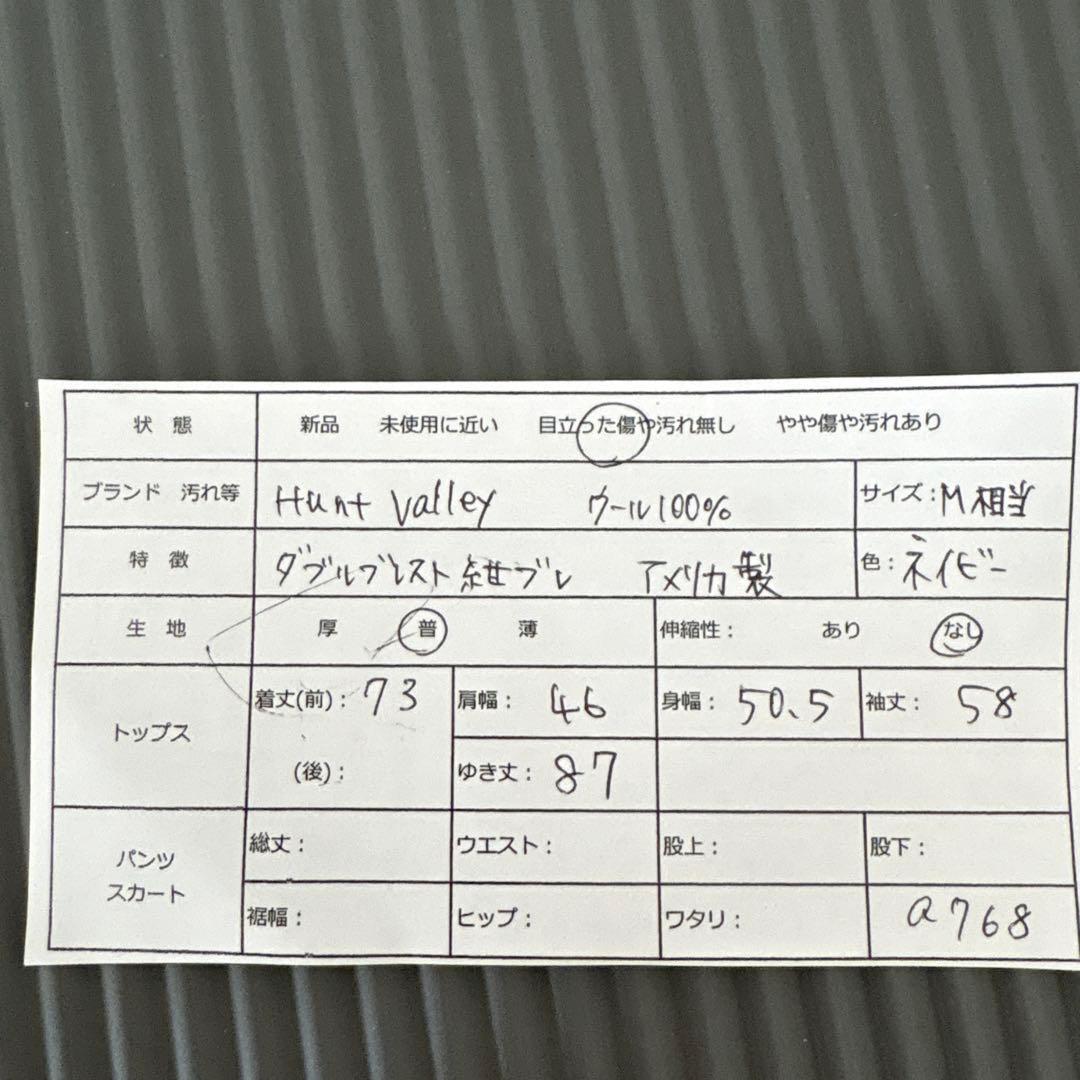 状 態 新品 未使用に近い 目立った傷や汚れ無し やや傷や汚れあり
ブランド 汚れ等 Hunt Valley ウール100% サイズ：M相当
特 徴 ダブルブレスト紺ブレ アメリカ製 色：ネイビー
生 地 厚 普 薄 伸縮性： あり なし
トップス 着丈(前)：73 肩幅：46 身幅：50.5 袖丈：58
(後)： ゆき丈：87
パンツ
スカート
総丈： ウエスト： 股上： 股下：
裾幅： ヒップ： ワタリ： a768